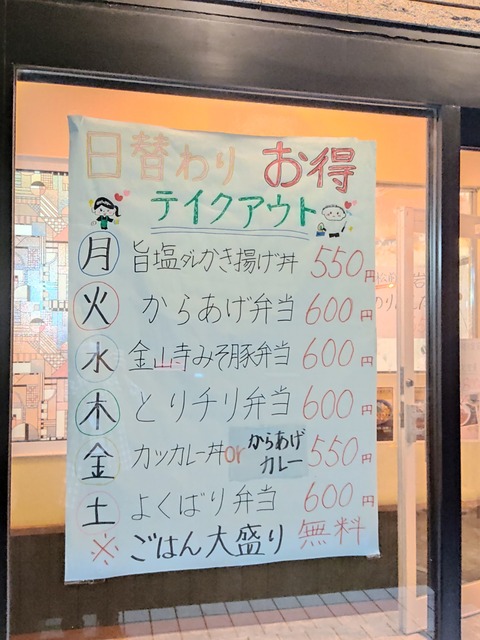 日替わり お得
テイクアウト
月 旨塩ダレかき揚げ丼 550円
火 からあげ弁当 600円
水 金山寺みそ豚弁当 600円
木 とりチリ弁当 600円
金 カツカレー丼or からあげカレー 550円
土 よくばり弁当 600円
※ごはん大盛り 無料